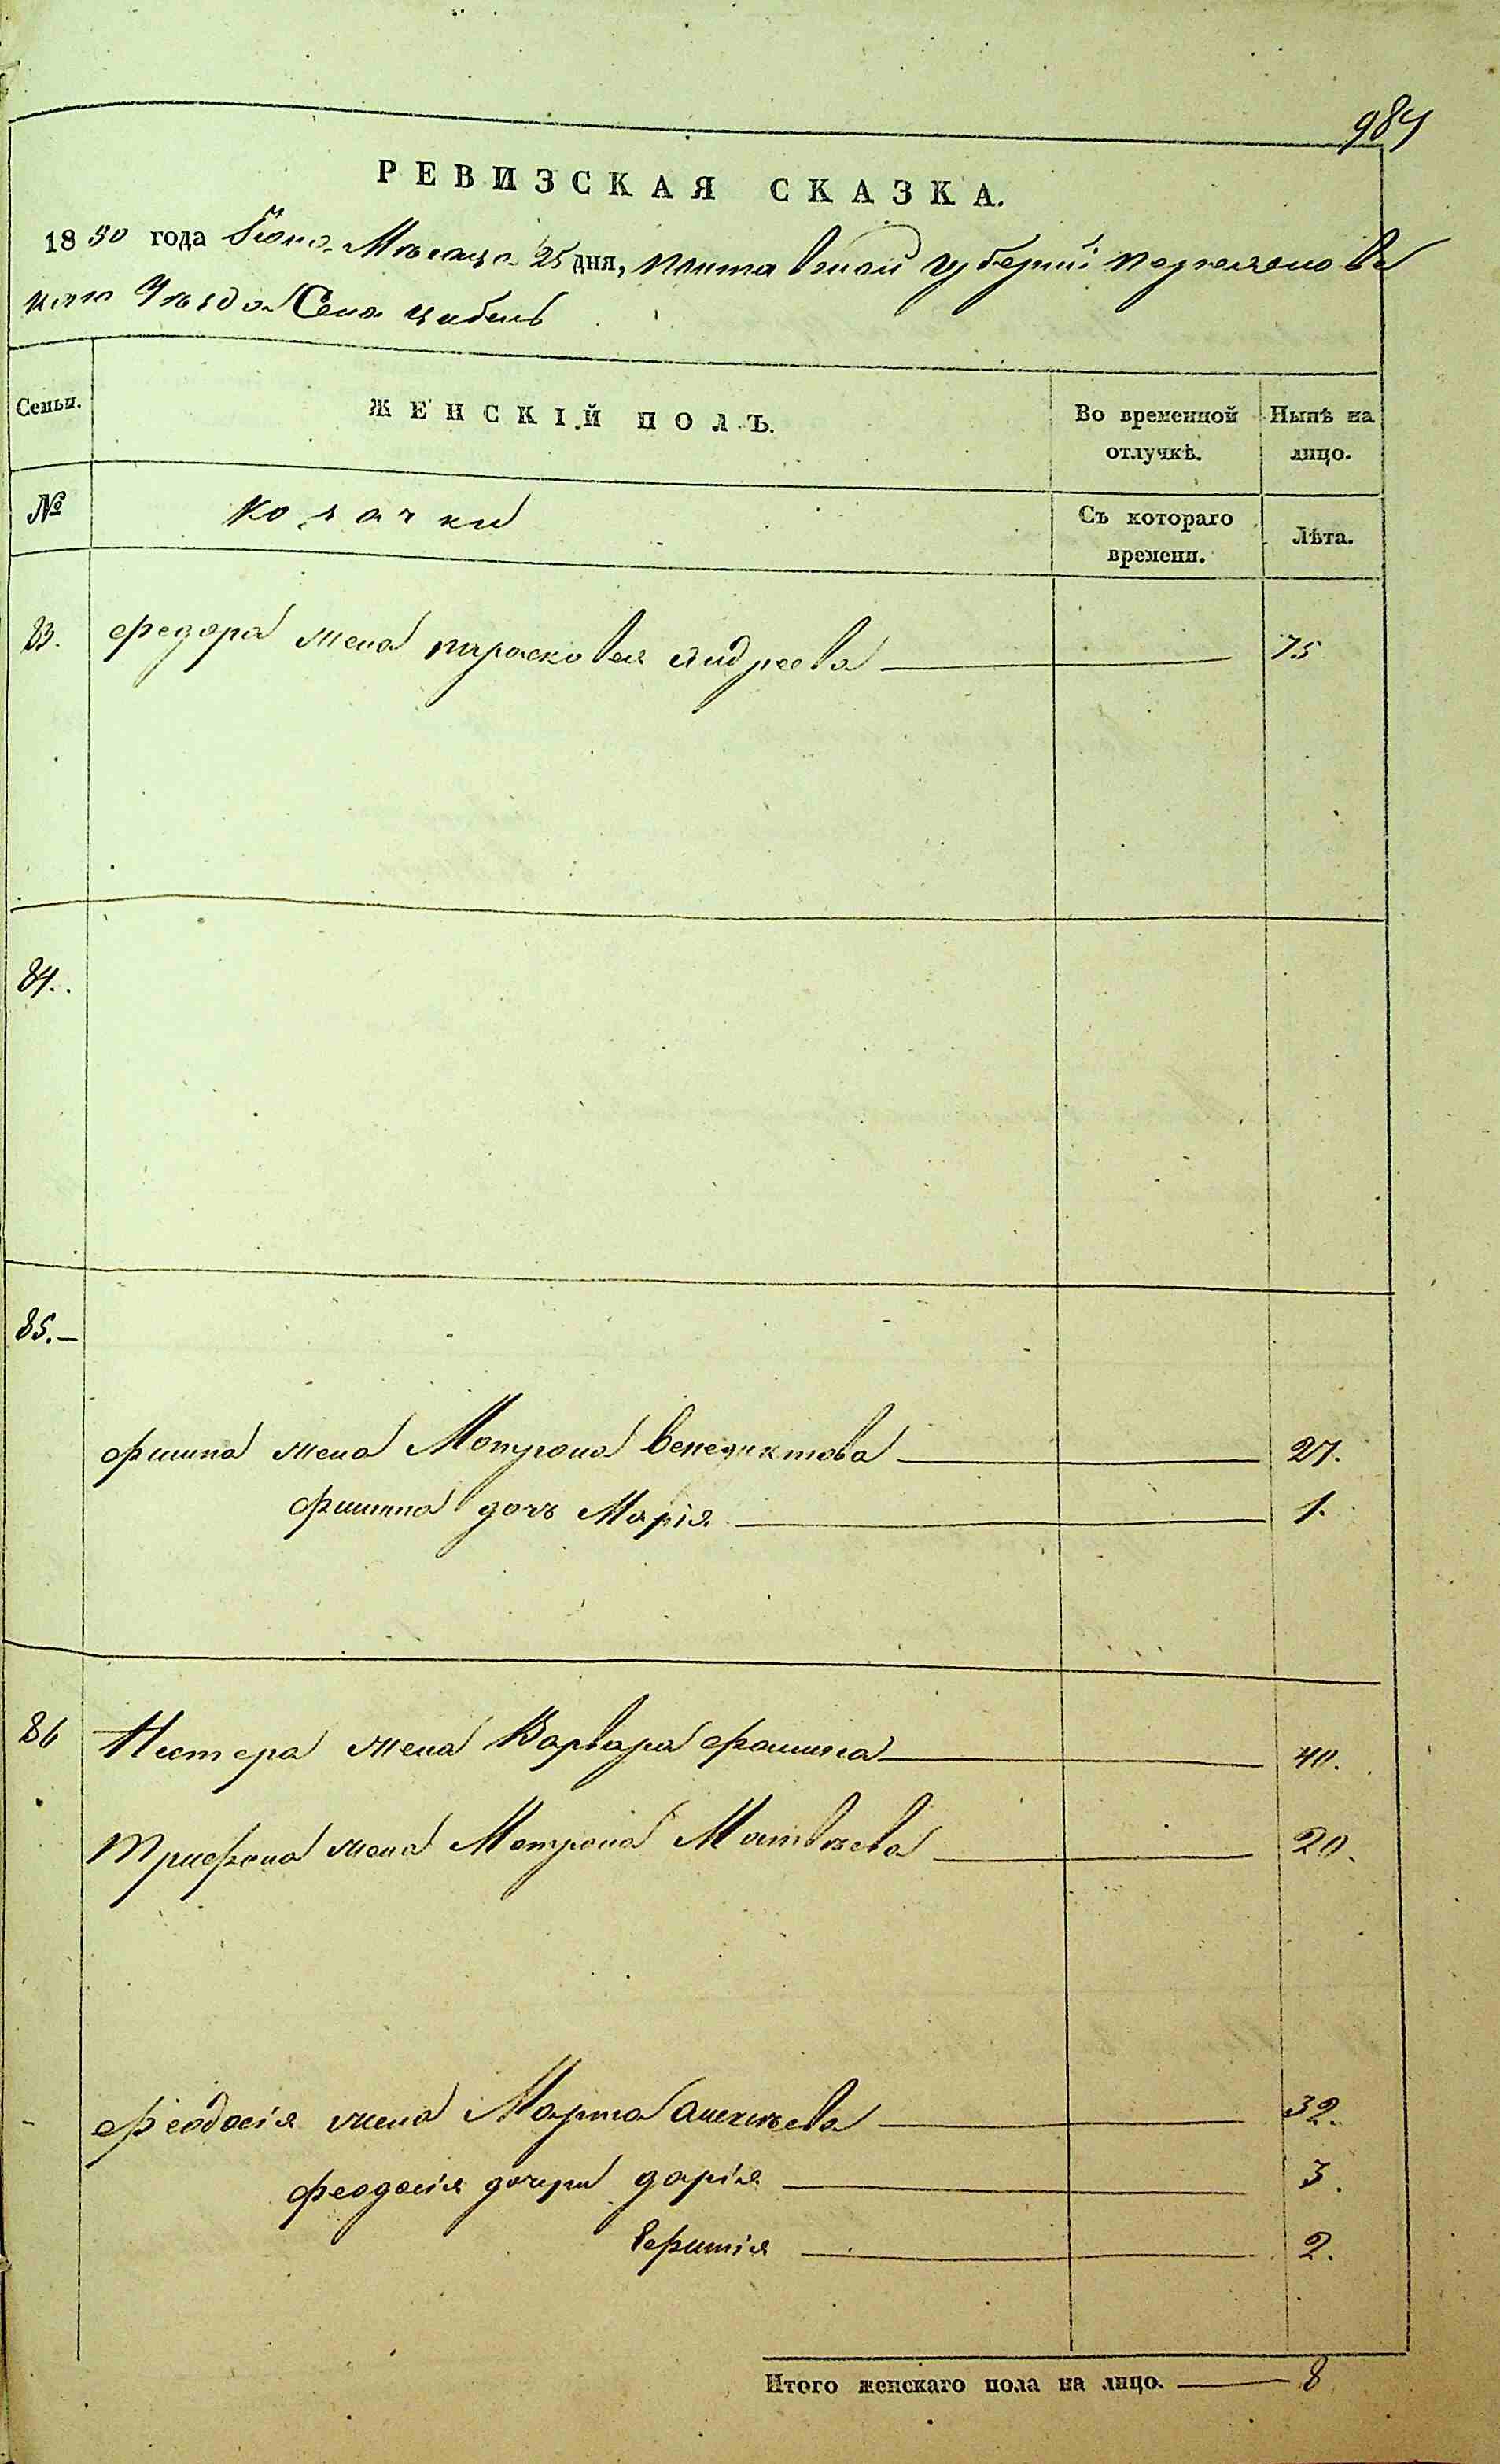 984
РЕВИЗСКАЯ СКАЗКА.
1850 года Июня Месяца 25 дня, Полтавской губернии Переяслов
кого Уезда Села Цибель
Семьи. ЖЕНСКІЙ ПОЛЪ. Во временной отлучкѣ. Нынѣ на лицо.
№ Козачки Съ котораго времени. Лѣта.
83. Федора жена Парасковея Андреева 75
84.
85.
Филипа жена Мотрона Венедиктова 27.
Филипа дочъ Марія 1.
86 Нестера жена Варвара Фомина 40.
Трифона жена Мотрона Матвѣева 20.
Феодосія жена Марта Алексѣева 32.
Феодосія дочери Дарія 3.
2.
Итого женскаго пола на лицо. 8